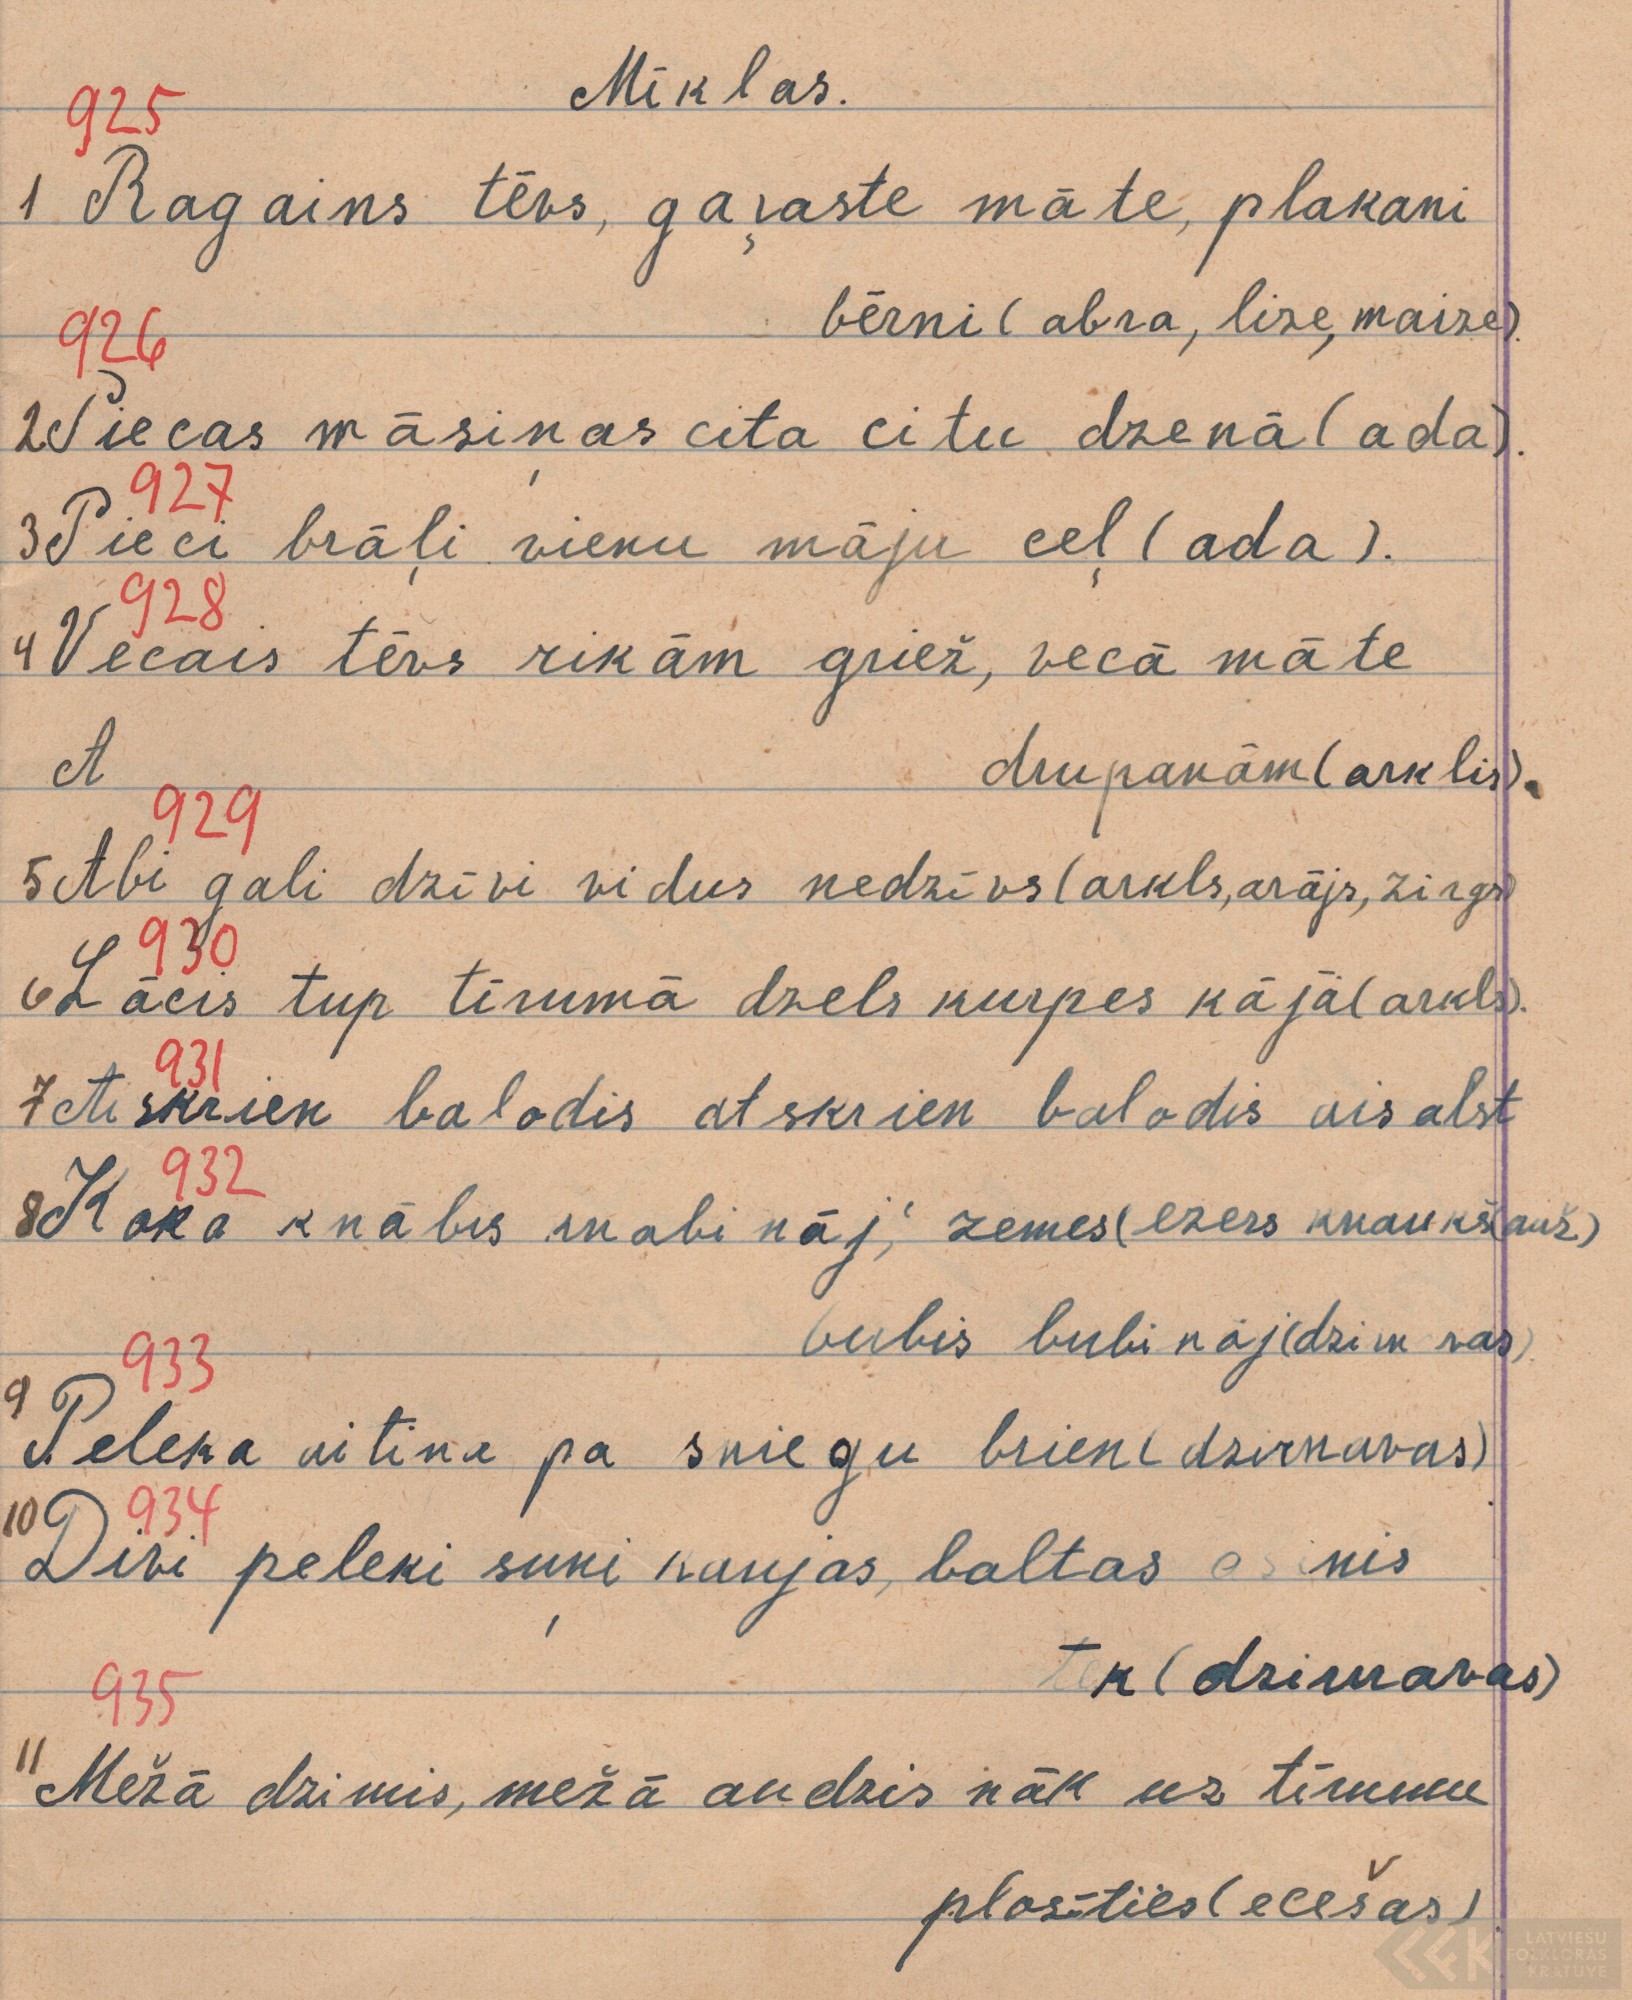 Mīklas.
925
1 Ragains tēvs, gaŗaste māte, plakani
bērni (abra, lize, maize).
926
2 Piecas māsiņas cita citu dzenā (ada).
927
3 Pieci brāļi vienu māju ceļ (ada).
928
4 Vecais tēvs rikām griež, vecā māte
A drupanām (arklis).
929
5 Abi gali dzīvi vidus nedzīvs (arkls, arājs, zirgs)
930
6 Lācis tup tīrumā dzels kurpes kājā (arkls).
931
7 Aiskrien balodis atskrien balodis aisalst
932
8 Koka knābis knabināj, zemes (ezers knaukš (auž)
bubis bubināj (dzirnvas).
933
9 Peleka aitiņa pa sniegu brien (dzirnavas)
934
10 Divi peleki suņi kaujas, baltas asinis
tek (dzirnavas)
935
11 Mežā dzimis, mežā audzis nāk uz tīrumu
plosīties (ecešas).
LATVIEŠU
FOLKLORAS
KRĀTUVE